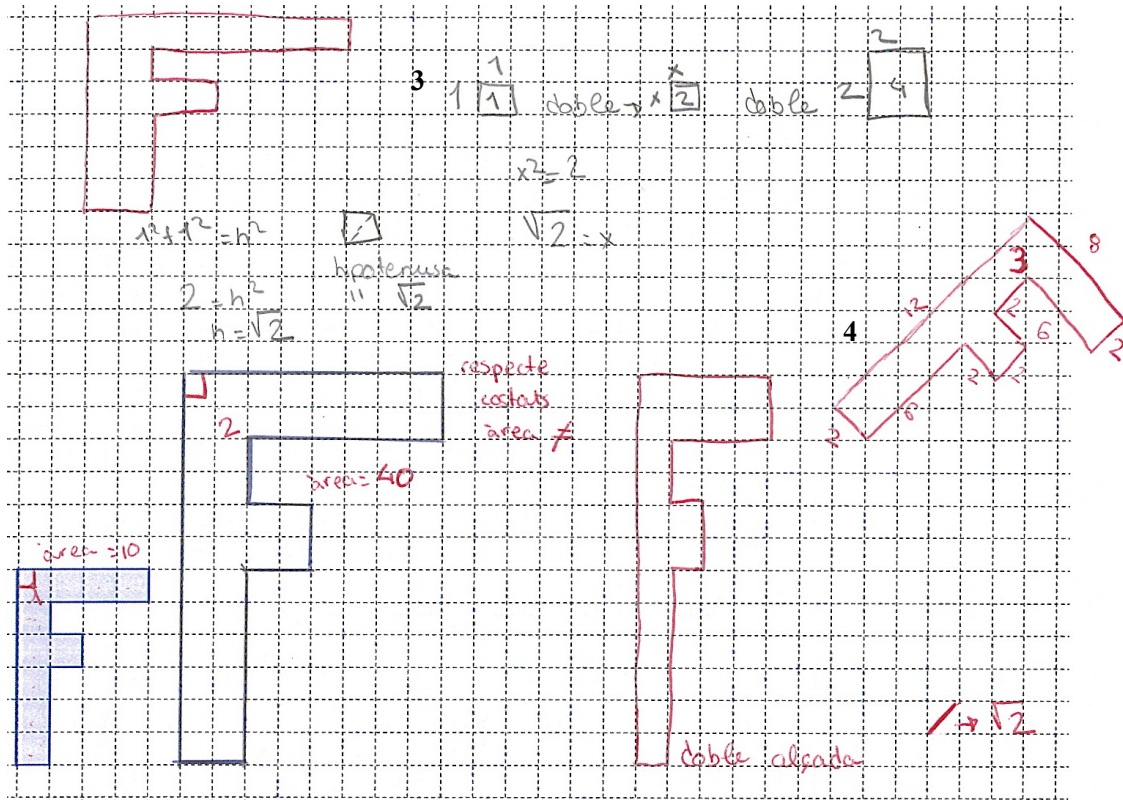 3
1
1 1 doble → x 2 doble 2 4
x
2
x² = 2
√2 = x
1² + 1² = h²
hipotenusa
" √2
2 = h²
h = √2
4
3
8
12
2
6
2
2
2
6
2
respecte
costats
àrea ≠
2
àrea = 40
àrea = 10
1
doble alçada
/ → √2